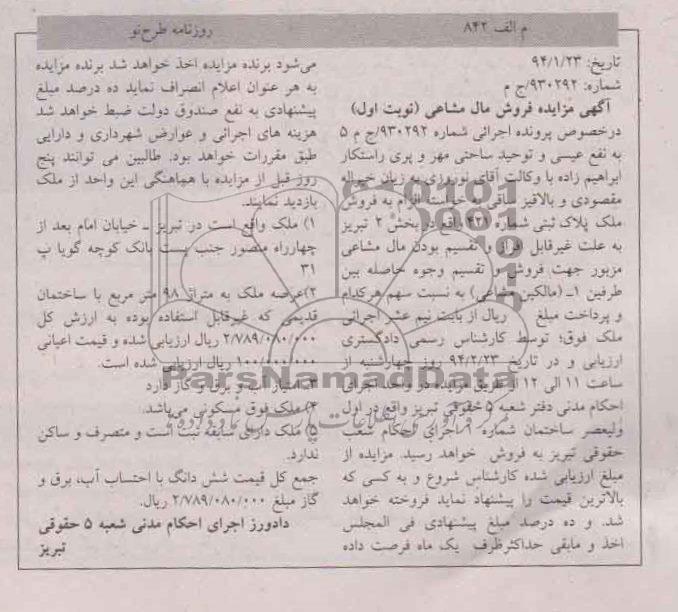 م الف ۸۴۲
روزنامه طرح‌نو
تاریخ: ۹۴/۱/۲۳
شماره: ۹۳۰۲۹۲/ج م
آگهی مزایده فروش مال مشاعی (نوبت اول)
درخصوص پرونده اجرائی شماره ۹۳۰۲۹۲/ج م ۵
به نفع عیسی و توحید ساحتی مهر و پری راستکار
ابراهیم زاده با وکالت آقای نوروزی به زیان
مقصودی و بالاقیز ساقی به خواسته اقدام به فروش
ملک پلاک ثبتی شماره ۴۲۱ واقع در بخش ۲ تبریز
به علت غیرقابل افراز و تقسیم بودن مال مشاعی
مزبور جهت فروش و تقسیم وجوه حاصله بین
طرفین ۱ـ (مالکین مشاعی) به نسبت سهم هرکدام
و پرداخت مبلغ ریال از بابت نیم عشر اجرائی
ملک فوق؛ توسط کارشناس رسمی دادگستری
ارزیابی و در تاریخ ۹۴/۲/۲۳ روز چهارشنبه از
ساعت ۱۱ الی ۱۲ از طریق مزایده در واحد اجرای
احکام مدنی دفتر شعبه ۵ حقوقی تبریز واقع در اول
ولیعصر ساختمان شماره ۱ اجرای احکام شعب
حقوقی تبریز به فروش خواهد رسید. مزایده از
مبلغ ارزیابی شده کارشناس شروع و به کسی که
بالاترین قیمت را پیشنهاد نماید فروخته خواهد
شد. و ده درصد مبلغ پیشنهادی فی المجلس
اخذ و مابقی حداکثرظرف یک ماه فرصت داده
می‌شود برنده مزایده اخذ خواهد شد برنده مزایده
به هر عنوان اعلام انصراف نماید ده درصد مبلغ
پیشنهادی به نفع صندوق دولت ضبط خواهد شد
هزینه های اجرائی و عوارض شهرداری و دارایی
طبق مقررات خواهد بود. طالبین می توانند پنج
روز قبل از مزایده با هماهنگی این واحد از ملک
بازدید نمایند.
۱) ملک واقع است در تبریز ـ خیابان امام بعد از
چهارراه منصور جنب پست بانک کوچه گویا پ
۳۱
۲)عرصه ملک به متراژ ۹۸ متر مربع با ساختمان
قدیمی که غیرقابل استفاده بوده به ارزش کل
۲/۷۸۹/۰۸۰/۰۰۰ ریال ارزیابی شده و قیمت اعیانی
۱۰۰/۰۰۰/۰۰۰ ریال ارزیابی شده است.
۳ـ امتیاز آب و برق و گاز دارد
۴) ملک فوق مسکونی می‌باشد.
۵) ملک دارای سابقه ثبت است و متصرف و ساکن
ندارد.
جمع کل قیمت شش دانگ با احتساب آب، برق و
گاز مبلغ ۲/۷۸۹/۰۸۰/۰۰۰ ریال.
دادورز اجرای احکام مدنی شعبه ۵ حقوقی
تبریز
ParsNamadData